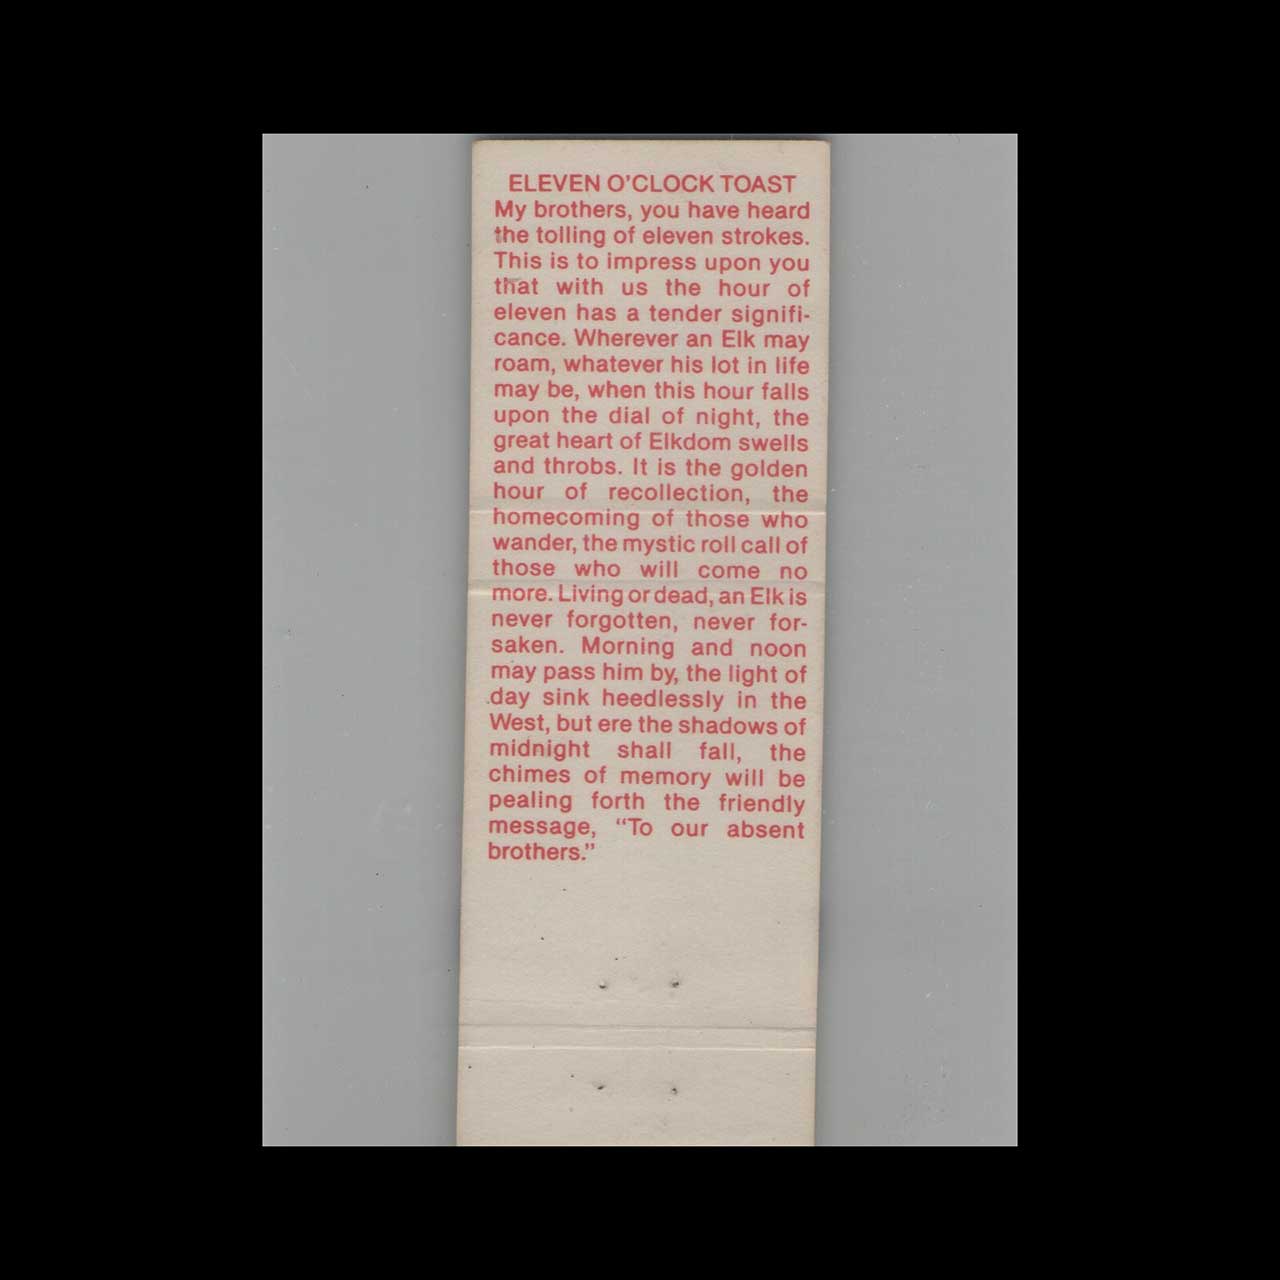 ELEVEN O'CLOCK TOAST
My brothers, you have heard
the tolling of eleven strokes.
This is to impress upon you
that with us the hour of
eleven has a tender signifi-
cance. Wherever an Elk may
roam, whatever his lot in life
may be, when this hour falls
upon the dial of night, the
great heart of Elkdom swells
and throbs. It is the golden
hour of recollection, the
homecoming of those who
wander, the mystic roll call of
those who will come no
more. Living or dead, an Elk is
never forgotten, never for-
saken. Morning and noon
may pass him by, the light of
day sink heedlessly in the
West, but ere the shadows of
midnight shall fall, the
chimes of memory will be
pealing forth the friendly
message, “To our absent
brothers.”